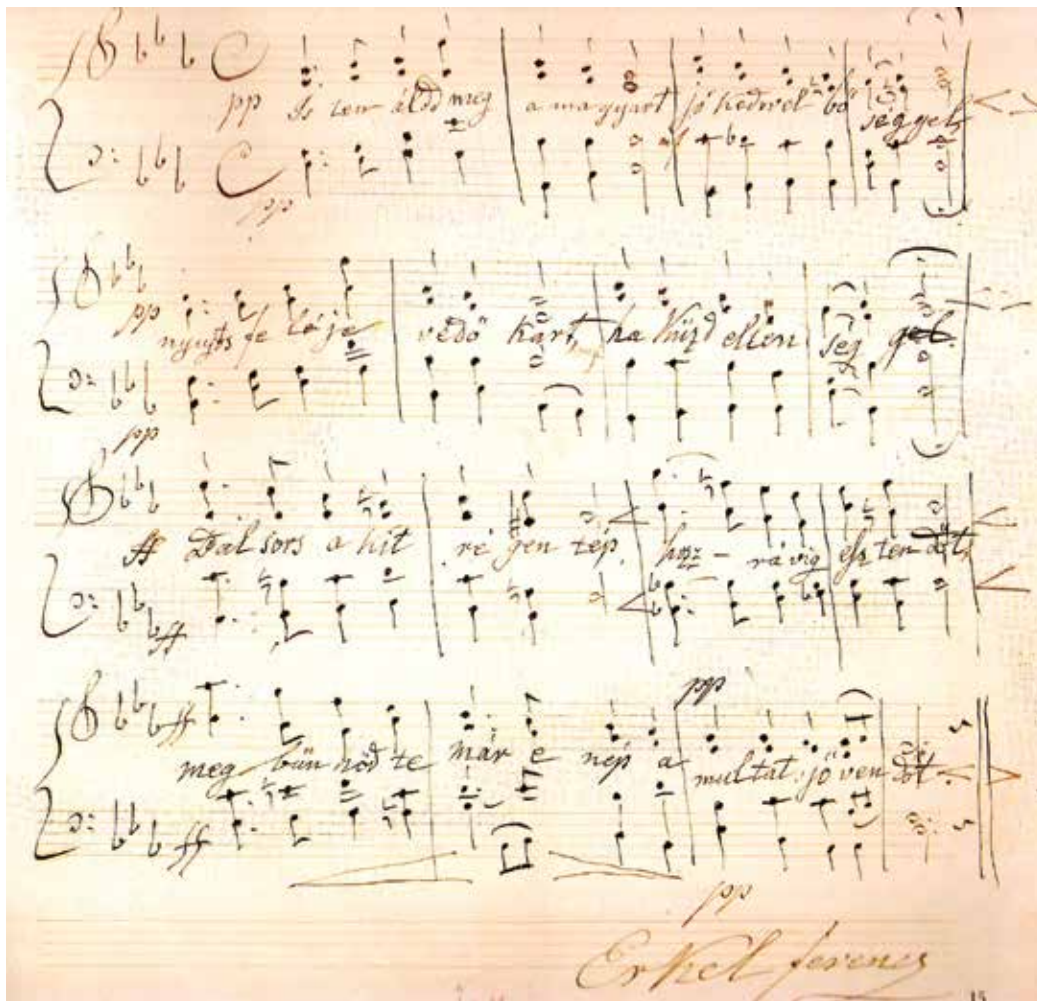 pp Is ten áldd meg a ma gyart jó kedvvel bő ség gel,
pp
pp nyujts fe lé je védő kart, ha küzd ellen ség gel.
pp
ff Bal sors a kit ré gen tép, hozz – rá víg esz ten dőt,
ff
pp
ff meg bűn hőd te már e nép a multat jö ven dőt.
ff
pp
Erkel ferencz
15